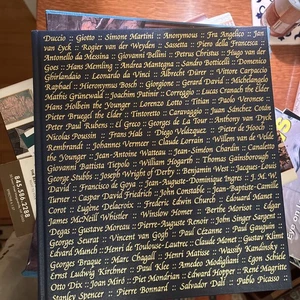 Duccio :: Giotto :: Simone Martini :: Anonymous :: Fra Angelico :: Jan
van Eyck :: Rogier van der Weyden :: Sassetta :: Piero della Francesca ::
Antonello da Messina :: Giovanni Bellini :: Petrus Christus :: Hugo van der
Goes :: Hans Memling :: Andrea Mantegna :: Sandro Botticelli :: Domenico
Ghirlandaio :: Leonardo da Vinci :: Albrecht Dürer :: Vittore Carpaccio
Raphael :: Hieronymus Bosch :: Giorgione :: Gerard David :: Michelangelo
Mathis Grünewald :: Joachim Patinir :: Correggio :: Lucas Cranach the Elder
Hans Holbein the Younger :: Lorenzo Lotto :: Titian :: Paolo Veronese
Pieter Bruegel the Elder :: Tintoretto :: Caravaggio :: Juan Sánchez Cotán
Peter Paul Rubens :: El Greco :: Georges de La Tour :: Anthony van Dyck
Nicolas Poussin :: Frans Hals :: Diego Velázquez :: Pieter de Hooch
Rembrandt :: Johannes Vermeer :: Claude Lorrain :: Willem van de Velde
the Younger :: Jean-Antoine Watteau :: Jean-Siméon Chardin :: Canaletto
Giovanni Battista Tiepolo :: William Hogarth :: Thomas Gainsborough
George Stubbs :: Joseph Wright of Derby :: Benjamin West :: Jacques-Louis
David :: Francisco de Goya :: Jean-Auguste-Dominique Ingres :: J. M. W.
Turner :: Caspar David Friedrich :: John Constable :: Jean-Baptiste-Camille
Corot :: Eugène Delacroix :: Frederic Edwin Church :: Edouard Manet
James McNeill Whistler :: Winslow Homer :: Berthe Morisot :: Edgar
Degas :: Gustave Moreau :: Pierre-Auguste Renoir :: John Singer Sargent
Georges Seurat :: Vincent van Gogh :: Paul Cézanne :: Paul Gauguin
Edvard Munch :: Henri de Toulouse-Lautrec :: Claude Monet :: Gustav Klimt
Georges Braque :: Marc Chagall :: Henri Matisse :: Wassily Kandinsky ::
Ernst Ludwig Kirchner :: Paul Klee :: Amedeo Modigliani :: Egon Schiele
Otto Dix :: Joan Miró :: Piet Mondrian :: Edward Hopper :: René Magritte
Stanley Spencer :: Pierre Bonnard :: Salvador Dalí :: Pablo Picasso